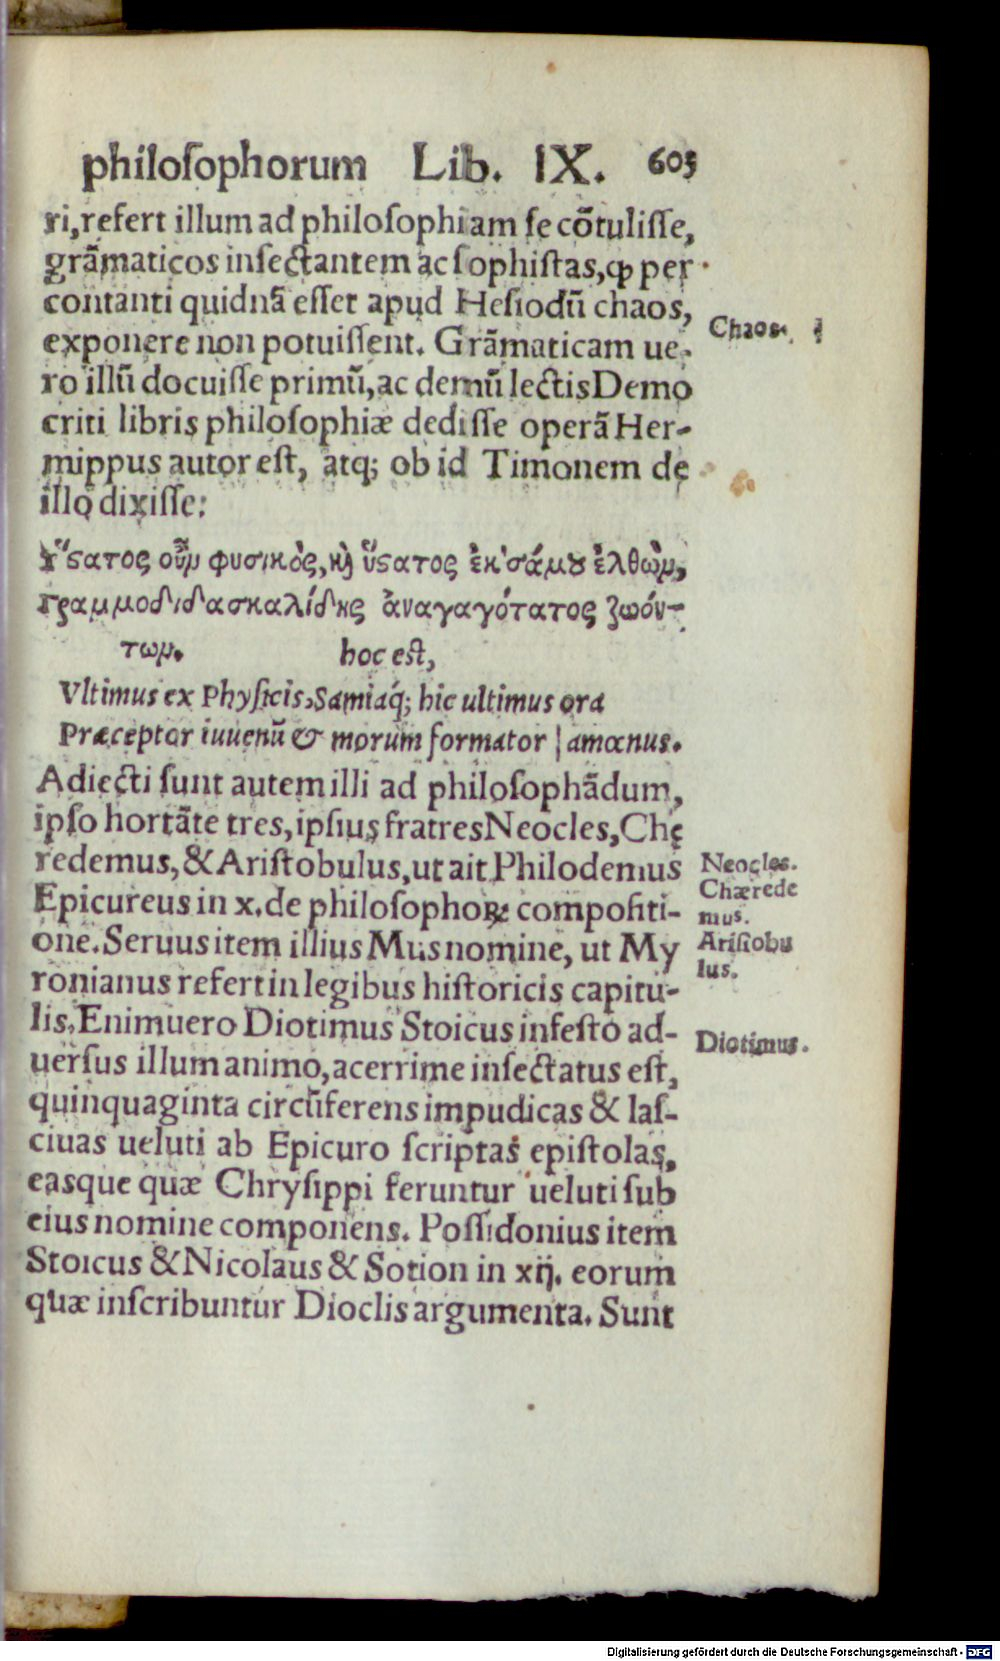 philoſophorum Lib. IX. 605
ri, refert illum ad philoſophiam ſe cõtuliſſe,
grãmaticos inſectantem ac ſophiſtas, ꝙ per
contanti quidnã eſſet apud Heſiodũ chaos,
Chaos.
exponere non potuiſſent. Grãmaticam ue-
ro illũ docuiſſe primũ, ac demũ lectis Demo
criti libris philoſophiæ dediſſe operã Her-
mippus autor eſt, atq; ob id Timonem de
illo dixiſſe:
Ὕϛατος οὖν φυσικὸς, κὴ ὕϛατος ἐκ σάμȣ ἐλθὼν,
Γραμμοδιδασκαλίδης ἀναγαγότατος ζωόν-
των. hoc eſt,
Vltimus ex Phyſicis, Samiaq́; hic ultimus ora
Præceptor iuuenũ & morum formator | amœnus.
Adiecti ſunt autem illi ad philoſophãdum,
ipſo hortãte tres, ipſius fratres Neocles, Chę
redemus, & Ariſtobulus, ut ait Philodemus
Neocles.
Chærede
mus.
Epicureus in x. de philoſophoꝝ compoſiti-
one. Seruus item illius Mus nomine, ut My
Ariſtobu
lus.
ronianus refert in legibus hiſtoricis capitu-
lis. Enimuero Diotimus Stoicus infeſto ad-
Diotimus.
uerſus illum animo, acerrime inſectatus eſt,
quinquaginta circũferens impudicas & laſ-
ciuas ueluti ab Epicuro ſcriptas epiſtolas,
easque quæ Chryſippi feruntur ueluti ſub
eius nomine componens. Poſſidonius item
Stoicus & Nicolaus & Sotion in xij. eorum
quæ inſcribuntur Dioclis argumenta. Sunt
Digitalisierung gefördert durch die Deutsche Forschungsgemeinschaft - DFG